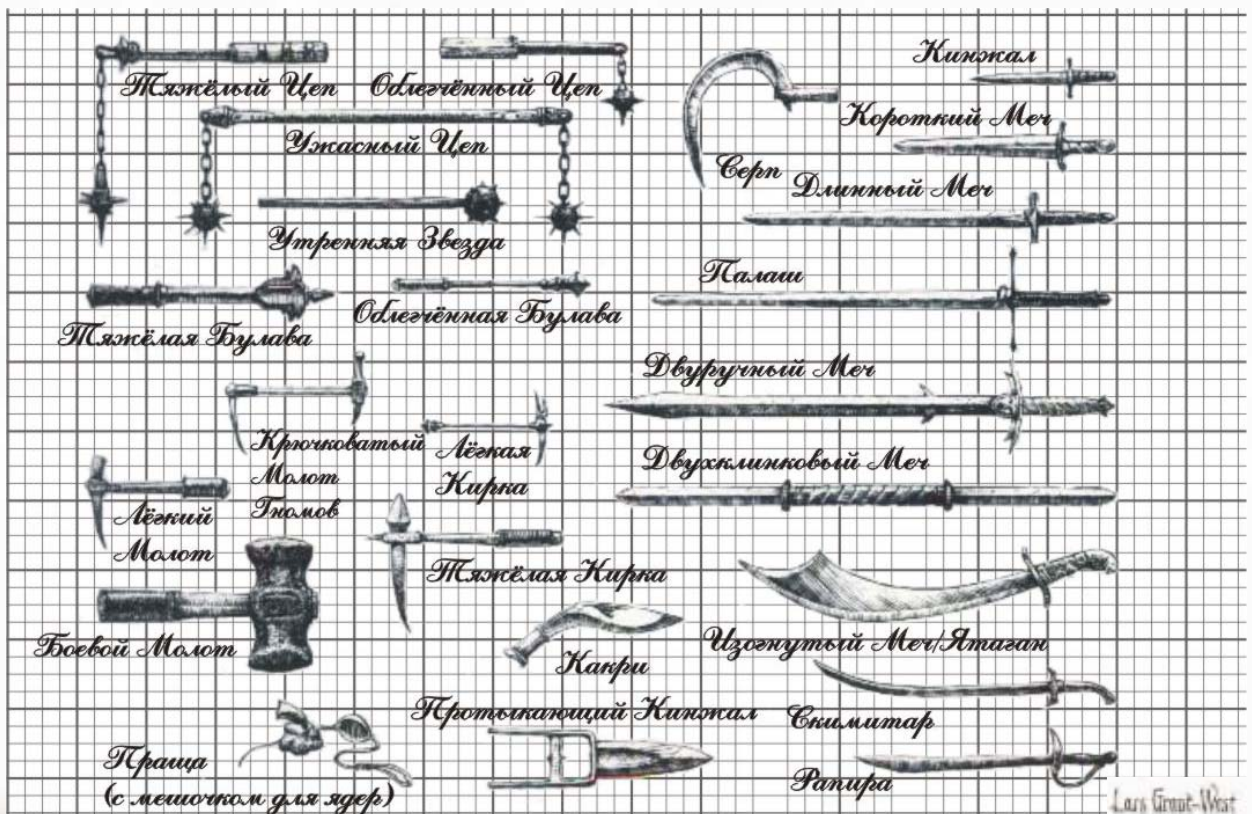 Тяжёлый Цеп
Облегчённый Цеп
Кинжал
Короткий Меч
Ужасный Цеп
Серп
Длинный Меч
Утренняя Звезда
Палаш
Облегчённая Булава
Тяжёлая Булава
Двуручный Меч
Крючковатый
Молот
Гномов
Лёгкая
Кирка
Двухклинковый Меч
Лёгкий
Молот
Тяжёлая Кирка
Боевой Молот
Какри
Изогнутый Меч/Ятаган
Протыкающий Кинжал
Скимитар
Праща
(с мешочком для ядер)
Рапира
Lars Grant-West